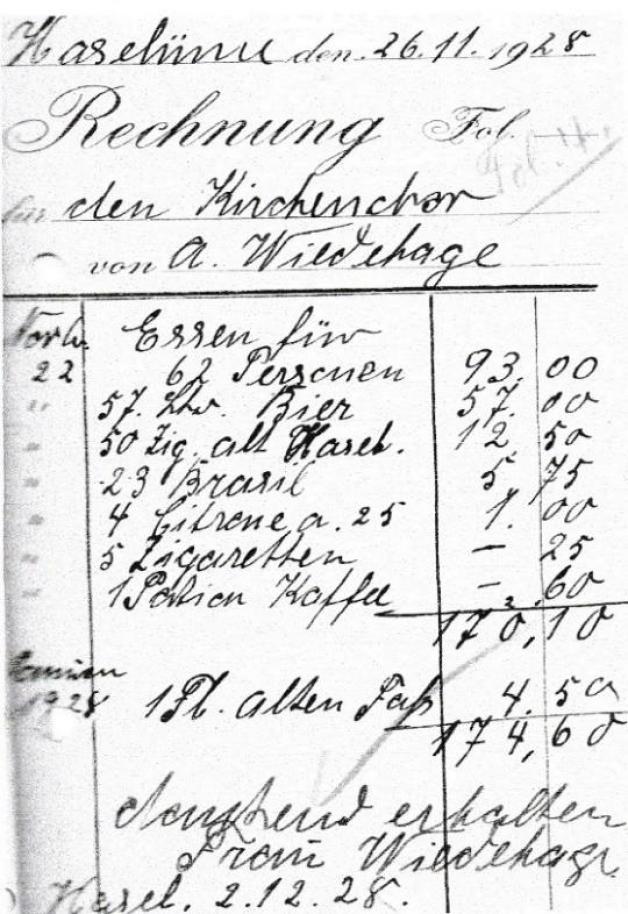 Haselünne den 26.11.1928
Rechnung Fol.
Fol. 4.
für den Kirchenchor
von A. Wiedehage
Novb. Essen für
22 62 Personen 93.00
" 57. Ltr. Bier 57.00
" 50 Zig. alt Hasel. 12.50
" 23 Brasil 5.75
" 4 Citrone a. 25 1.00
" 5 Zigaretten – 25
" 1 Potion Kaffee – 60
170,10
1928 1 Fl. alten Faß 4.50
174,60
dankend erhalten
Frau Wiedehage
Hasel. 2.12.28.